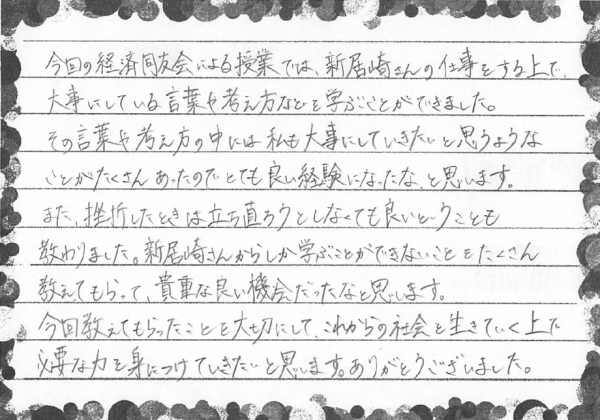 今回の経済同友会による授業では、新居崎さんの仕事をする上で、
大事にしている言葉や考え方などを学ぶことができました。
その言葉や考え方の中には私も大事にしていきたいと思うような
ことがたくさんあったのでとても良い経験になったな、と思います。
また、挫折したときは立ち直ろうとしなくても良いということも
教わりました。新居崎さんからしか学ぶことができないことをたくさん
教えてもらって、貴重な良い機会だったなと思います。
今回教えてもらったことを大切にして、これからの社会を生きていく上で
必要な力を身につけていきたいと思います。ありがとうございました。